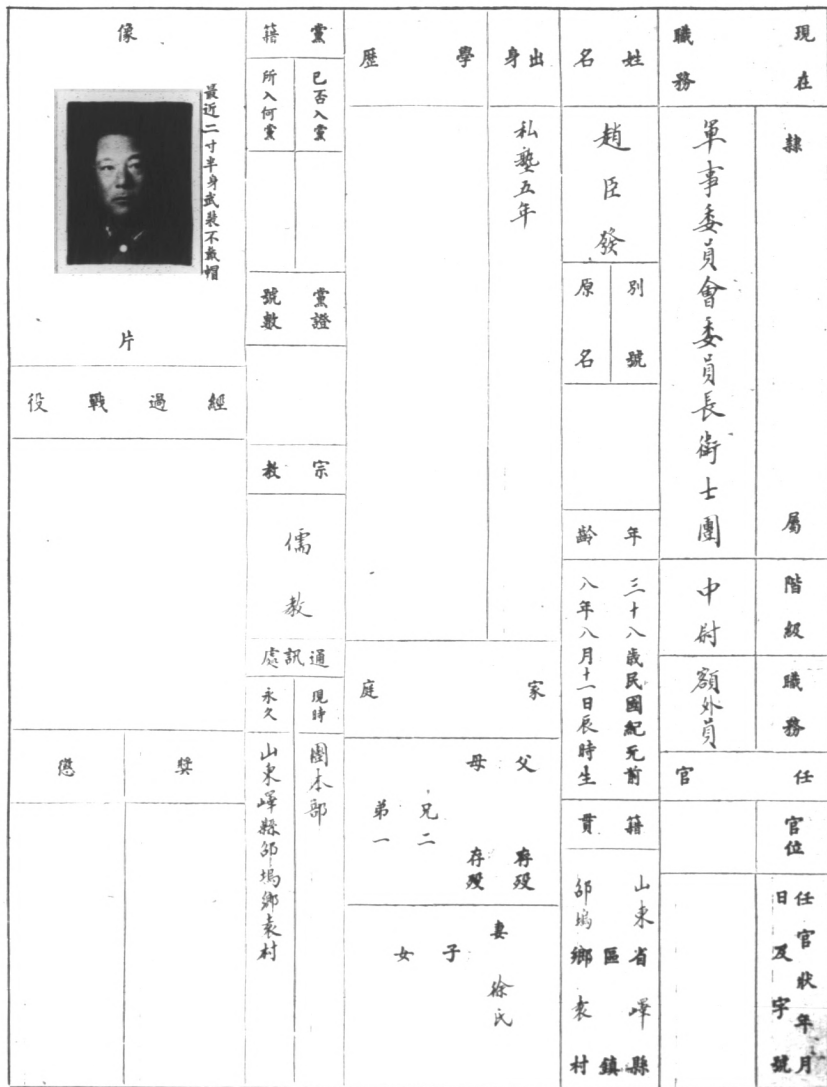 現在
職務
隸屬
軍事委員會委員長衛士團
階級
中尉
職務
額外員
任官
官位
任官狀年月
日及字號
姓名
趙臣發
別號
原名
年齡
三十八歲民國紀元前
八年八月十一日辰時生
籍貫
山東省嶧縣
區鎮
邵塢鄉袁村
出身
私塾五年
學歷
家庭
父存歿
母存歿
兄二
弟一
妻徐氏
子
女
黨籍
已否入黨
所入何黨
黨證
號數
宗教
儒教
通訊處
現時
團本部
永久
山東嶧縣邵塢鄉袁村
像
最近二寸半身武裝不戴帽
片
經過戰役
獎
懲